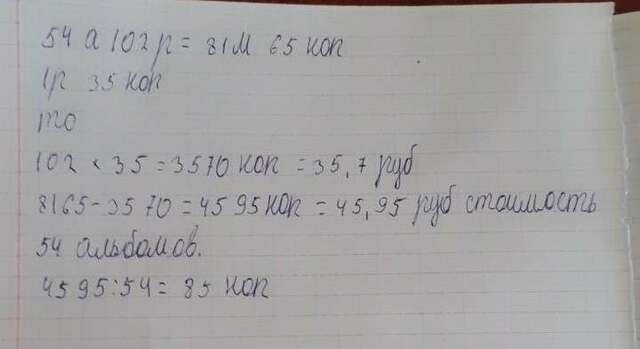 54 а 102 р = 81м 65 коп
1р 35 коп
102 × 35 = 3570 коп = 35,7 руб
8165 - 3570 = 4595 коп = 45,95 руб стоимость
54 альбомов.
4595 : 54 = 85 коп